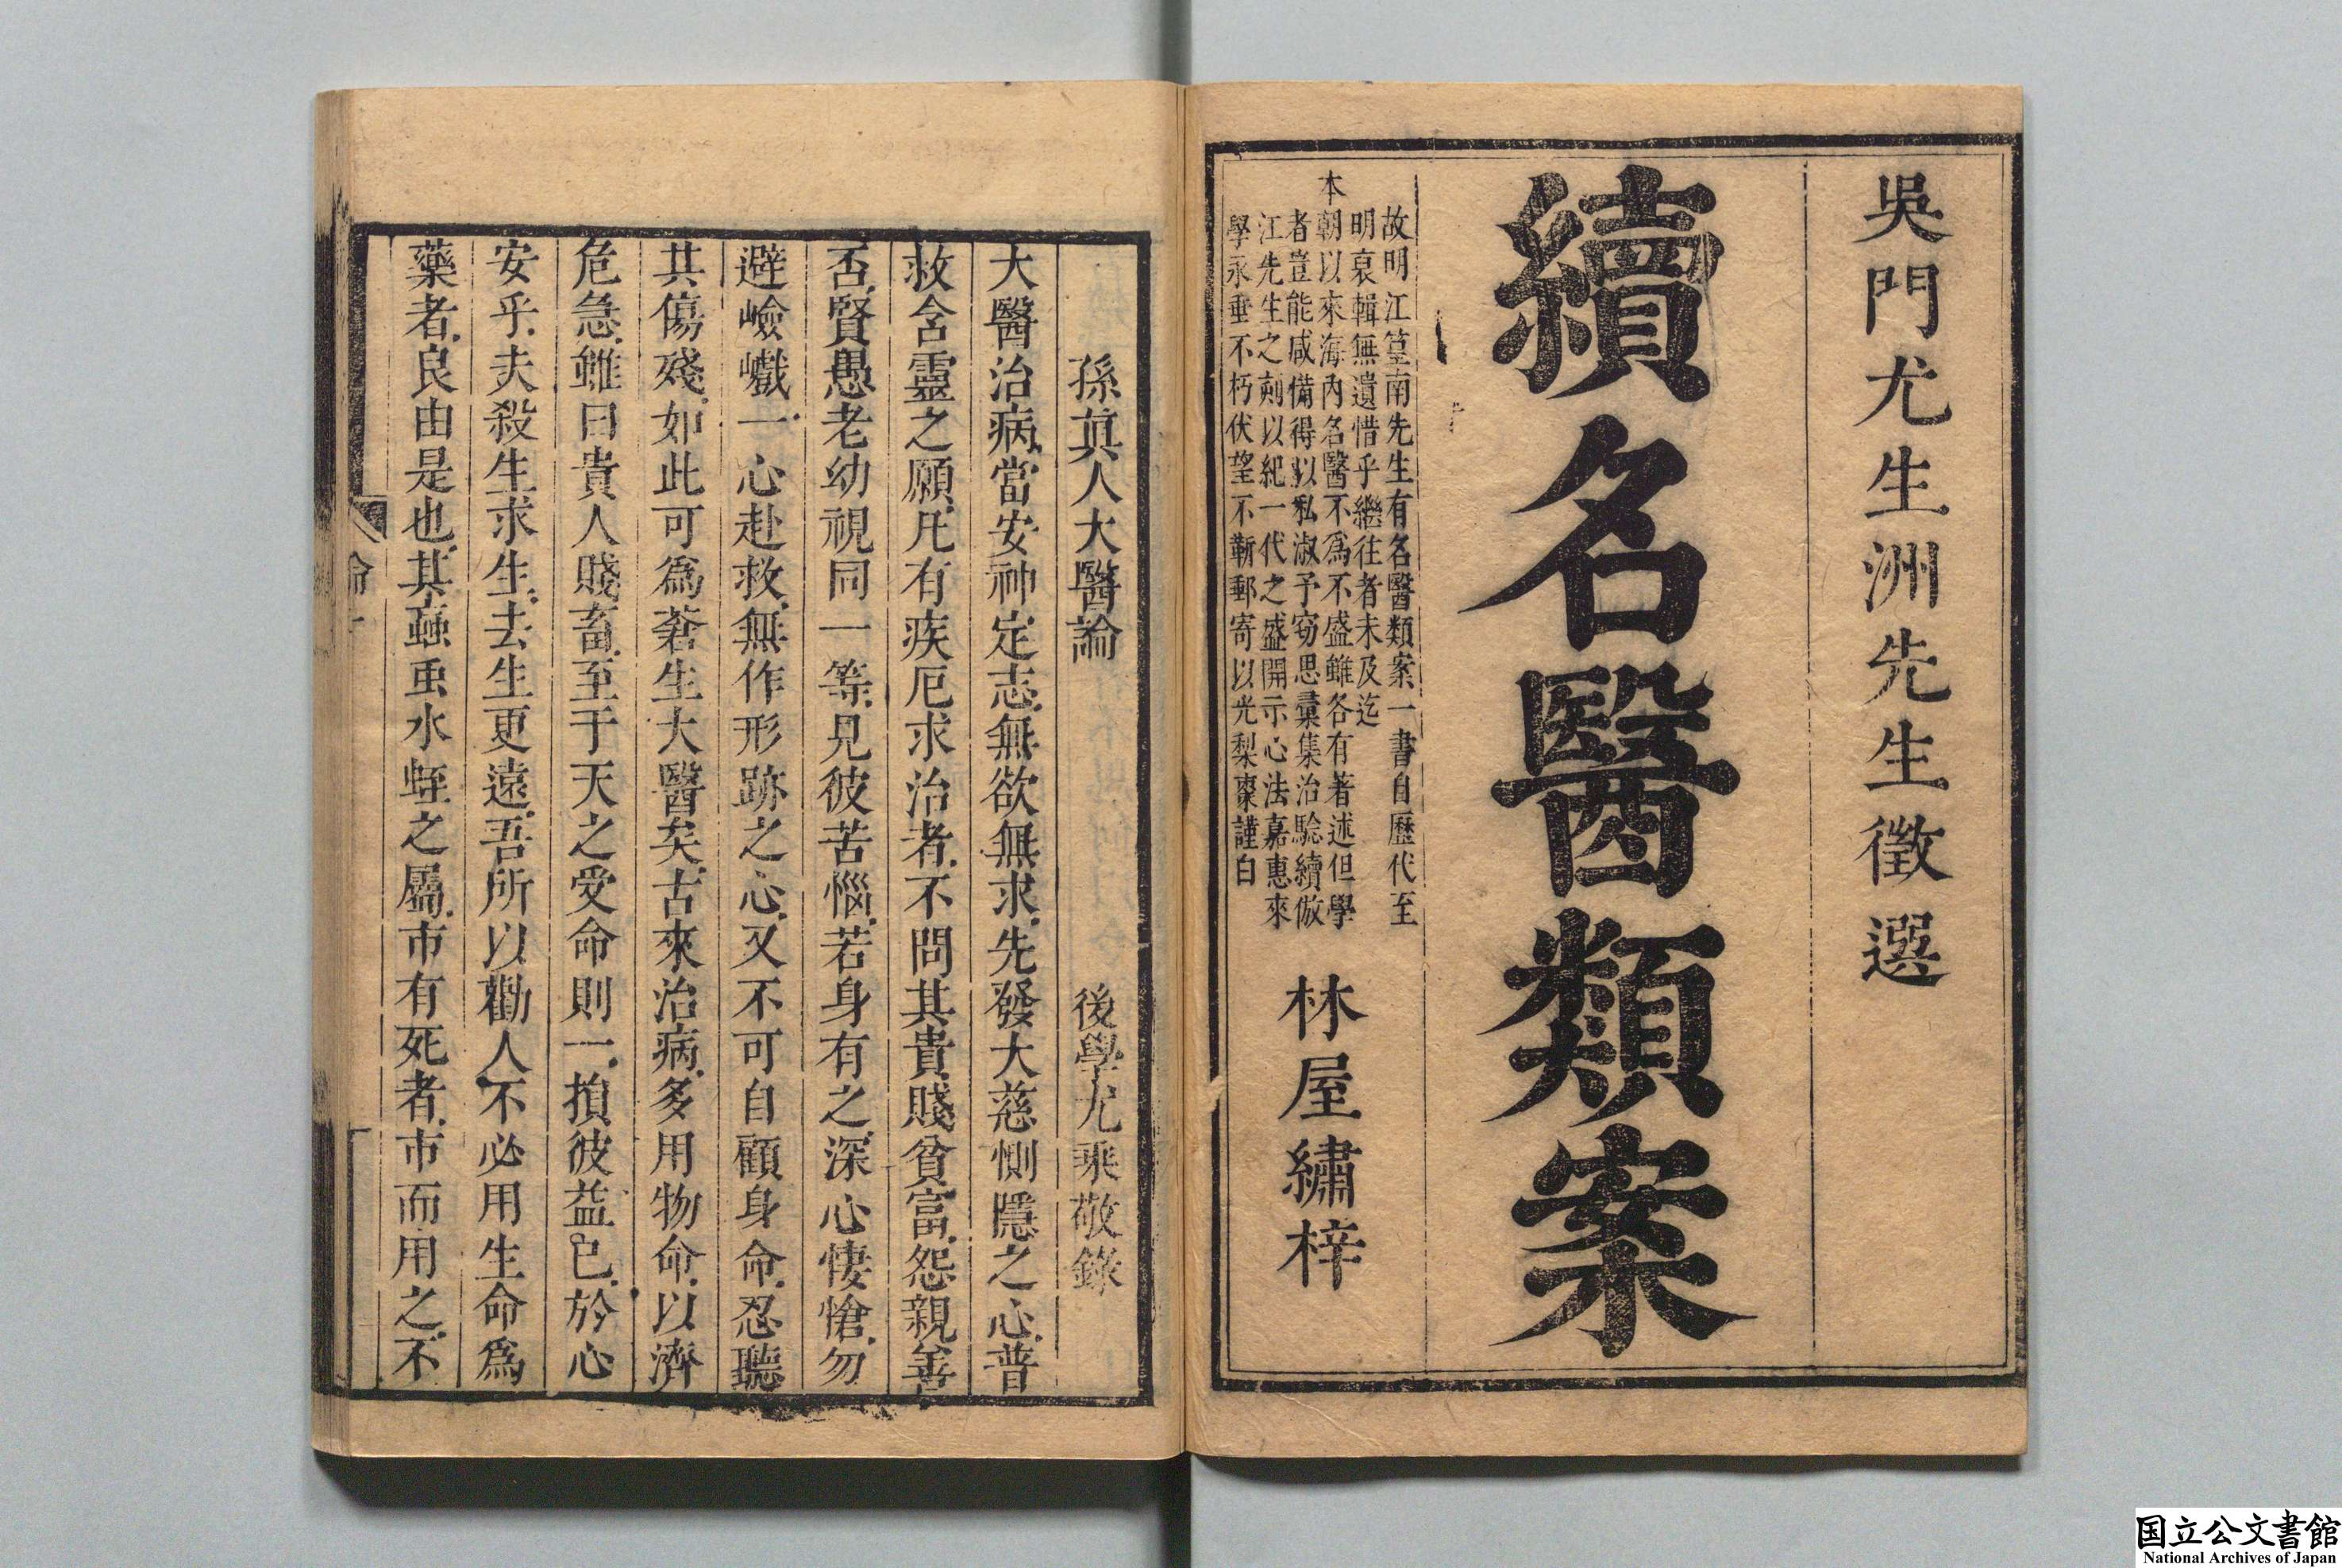 吳門尤生洲先生徵選
續名醫類案
故明江篁南先生有名醫類案一書自歷代至
明裒輯無遺惜乎繼往者未及迄
本朝以來海內名醫不爲不盛雖各有著述但學
者豈能咸備得以私淑予窃思彙集治驗續倣
江先生之刻以紀一代之盛開示心法嘉惠來
學永垂不朽伏望不靳郵寄以光梨棗謹白
林屋繡梓
孫眞人大醫論
後學尤乘敬錄
大醫治病當安神定志無欲無求先發大慈惻隱之心普
救含靈之願凡有疾厄求治者不問其貴賤貧富怨親善
否賢愚老幼視同一等見彼苦惱若身有之深心悽愴勿
避嶮巇一心赴救無作形跡之心又不可自顧身命忍聽
其傷殘如此可爲蒼生大醫矣古來治病多用物命以濟
危急雖曰貴人賤畜至于天之受命則一損彼益已於心
安乎夫殺生求生去生更遠吾所以勸人不必用生命爲
藥者良由是也其蝱虫水蛭之屬市有死者市而用之不
論 一
国立公文書館
National Archives of Japan